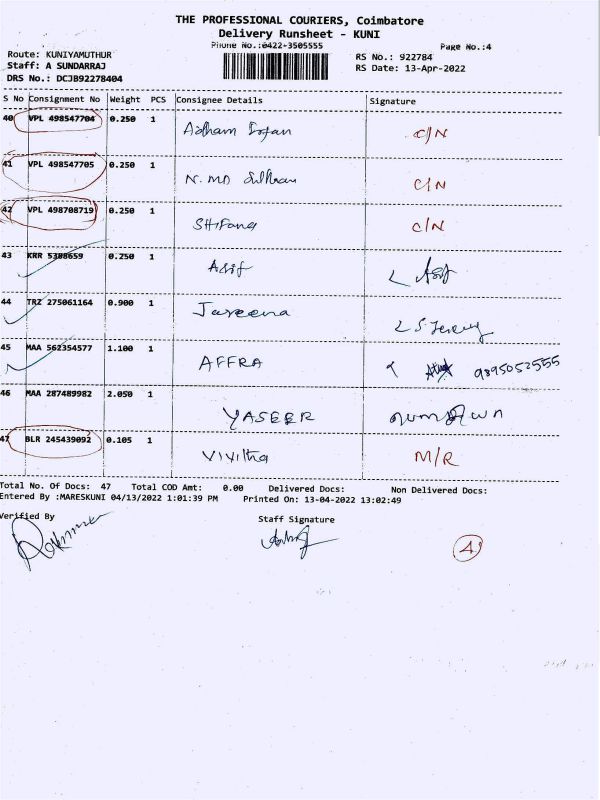 THE PROFESSIONAL COURIERS, Coimbatore
Delivery Runsheet - KUNI
Phone No.:0422-3505555
Page No.:4
Route: KUNIYAMUTHUR
RS No.: 922784
Staff: A SUNDARRAJ
RS Date: 13-Apr-2022
DRS No.: DCJB92278404
S No Consignment No Weight PCS Consignee Details Signature
40 VPL 498547704 0.250 1 C/N
41 VPL 498547705 0.250 1 C/N
42 VPL 498708719 0.250 1 Shifana C/N
43 KRR 5388659 0.250 1 Asif Asif
44 TRZ 275061164 0.900 1 Jaseena
45 MAA 562354577 1.100 1 AFFRA 9895052555
46 MAA 287489982 2.050 1 YASEER
47 BLR 245439092 0.105 1 M/R
Total No. Of Docs: 47 Total COD Amt: 0.00 Delivered Docs: Non Delivered Docs:
Entered By :MARESKUNI 04/13/2022 1:01:39 PM Printed On: 13-04-2022 13:02:49
Verified By Staff Signature
4